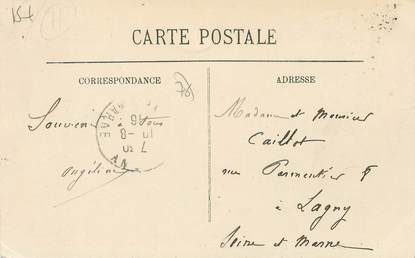 15t
CARTE POSTALE
CORRESPONDANCE
ADRESSE
Souvenir à Vous
Angéline
Madame et Monsieur
Caillot
rue Parmentier 9
à Lagny
Seine et Marne